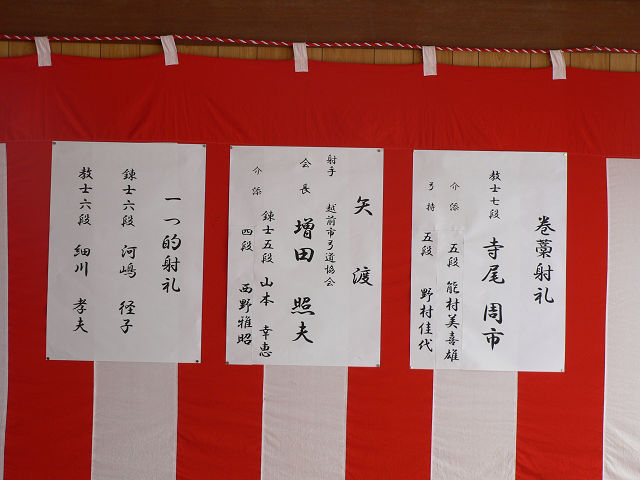 巻藁射礼
教士七段 寺尾 周市
介添 五段 能村美喜雄
弓持 五段 野村佳代
矢渡
射手 越前市弓道協会
会長 増田 照夫
介添 錬士五段 山本 幸恵
四段 西野雅昭
一つ的射礼
錬士六段 河嶋 径子
教士六段 細川 孝夫